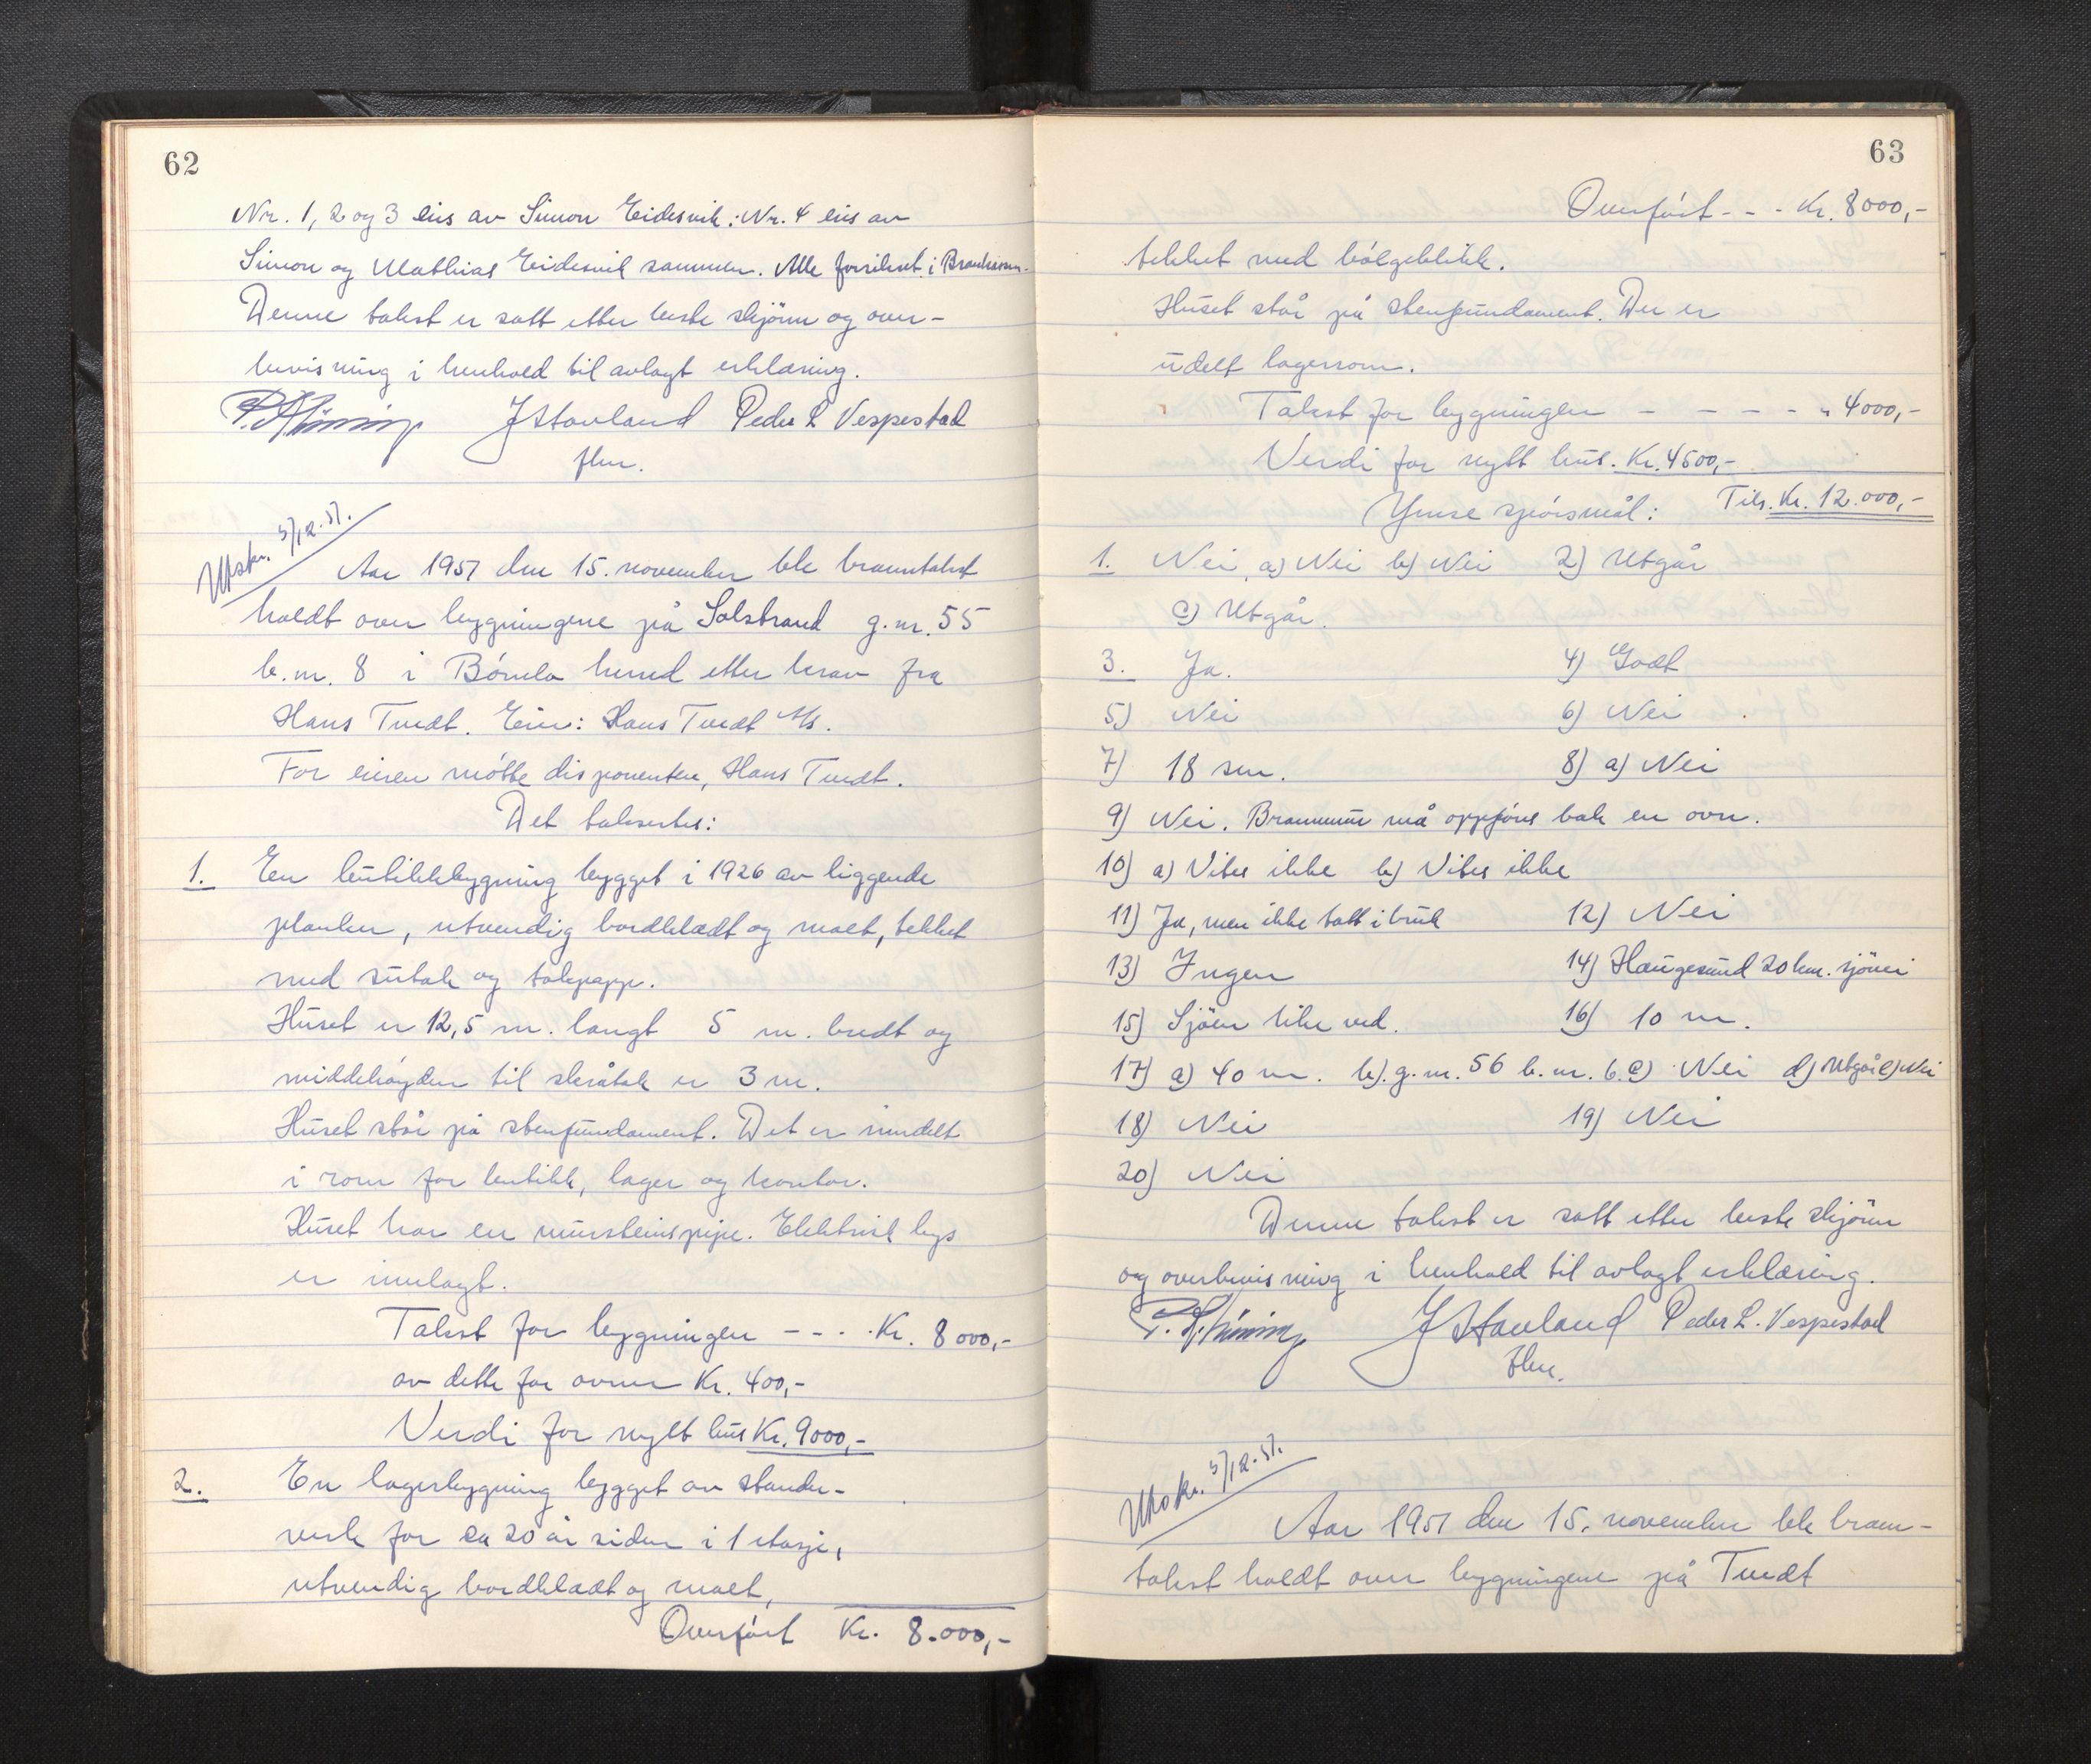 62
Nr. 1, 2 og 3 eies av Simon Eidesvik: Nr. 4 eies av
Simon og Mathias Eidesvik sammen. Alle forsikret i
Denne takst er satt etter beste skjönn og over-
bevisning i henhold til avlagt erklæring.
J Stavland Peder L Vespestad
fhm.
Utskr. 5/12-51.
Aar 1951 den 15. november ble branntakst
holdt over bygningene på Solstrand g.nr. 55
b.nr. 8 i Bömlo herred etter krav fra
Hans Tvedt. Eier: Hans Tvedt A/s.
For eieren mötte disponenten, Hans Tvedt.
Det taksertes:
1. En butikkbygning bygget i 1926 av liggende
planker, utvendig bordklædt og malt, tekket
med sutak og takpapp.
Huset er 12,5 m. langt 5 m. bredt og
middelhöyden til skråtak er 3 m.
Huset står på stenfundament. Det er inndelt
i rom for butikk, lager og kontor.
Huset har en mursteinspipe. Elektrisk lys
er innlagt.
Takst for bygningen - - - . Kr. 8000,-
av dette for ovner Kr. 400,-
Verdi for nytt hus Kr. 9000,-
2. En lagerbygning bygget av stender-
verk for ca 20 år siden i 1 etasje,
utvendig bordklædt og malt,
Overfört Kr. 8.000,-
63
Overfört - - - Kr. 8000,-
tekket med bölgeblikk.
Huset står på stenfundament. Der er
udelt lagerrom.
Takst for bygningen - - - - " 4000,-
Verdi for nytt hus. Kr. 4500,-
Ymse spörsmål: Tils. Kr. 12.000,-
1. Nei, a) Nei b) Nei 2) Utgår
c) Utgår.
3. Ja. 4) Godt
5) Nei 6) Nei
7) 18 sm. 8) a) Nei
9) Nei. Brannmur må oppföres bak en ovn.
10) a) Vites ikke b) Vites ikke
11) Ja, men ikke tatt i bruk 12) Nei
13) Ingen 14) Haugesund 20 km. sjövei
15) Sjöen like ved. 16) 10 m.
17) a) 40 m. b). g.nr. 56 b.nr. 6. c) Nei d) Utgår e) Nei
18) Nei 19) Nei
20) Nei
Denne takst er satt etter beste skjönn
og overbevisning i henhold til avlagt erklæring.
J Stavland Peder L. Vespestad
fhm.
Utskr. 5/12-51.
Aar 1951 den 15. november ble brann-
takst holdt over bygningene på Tvedt